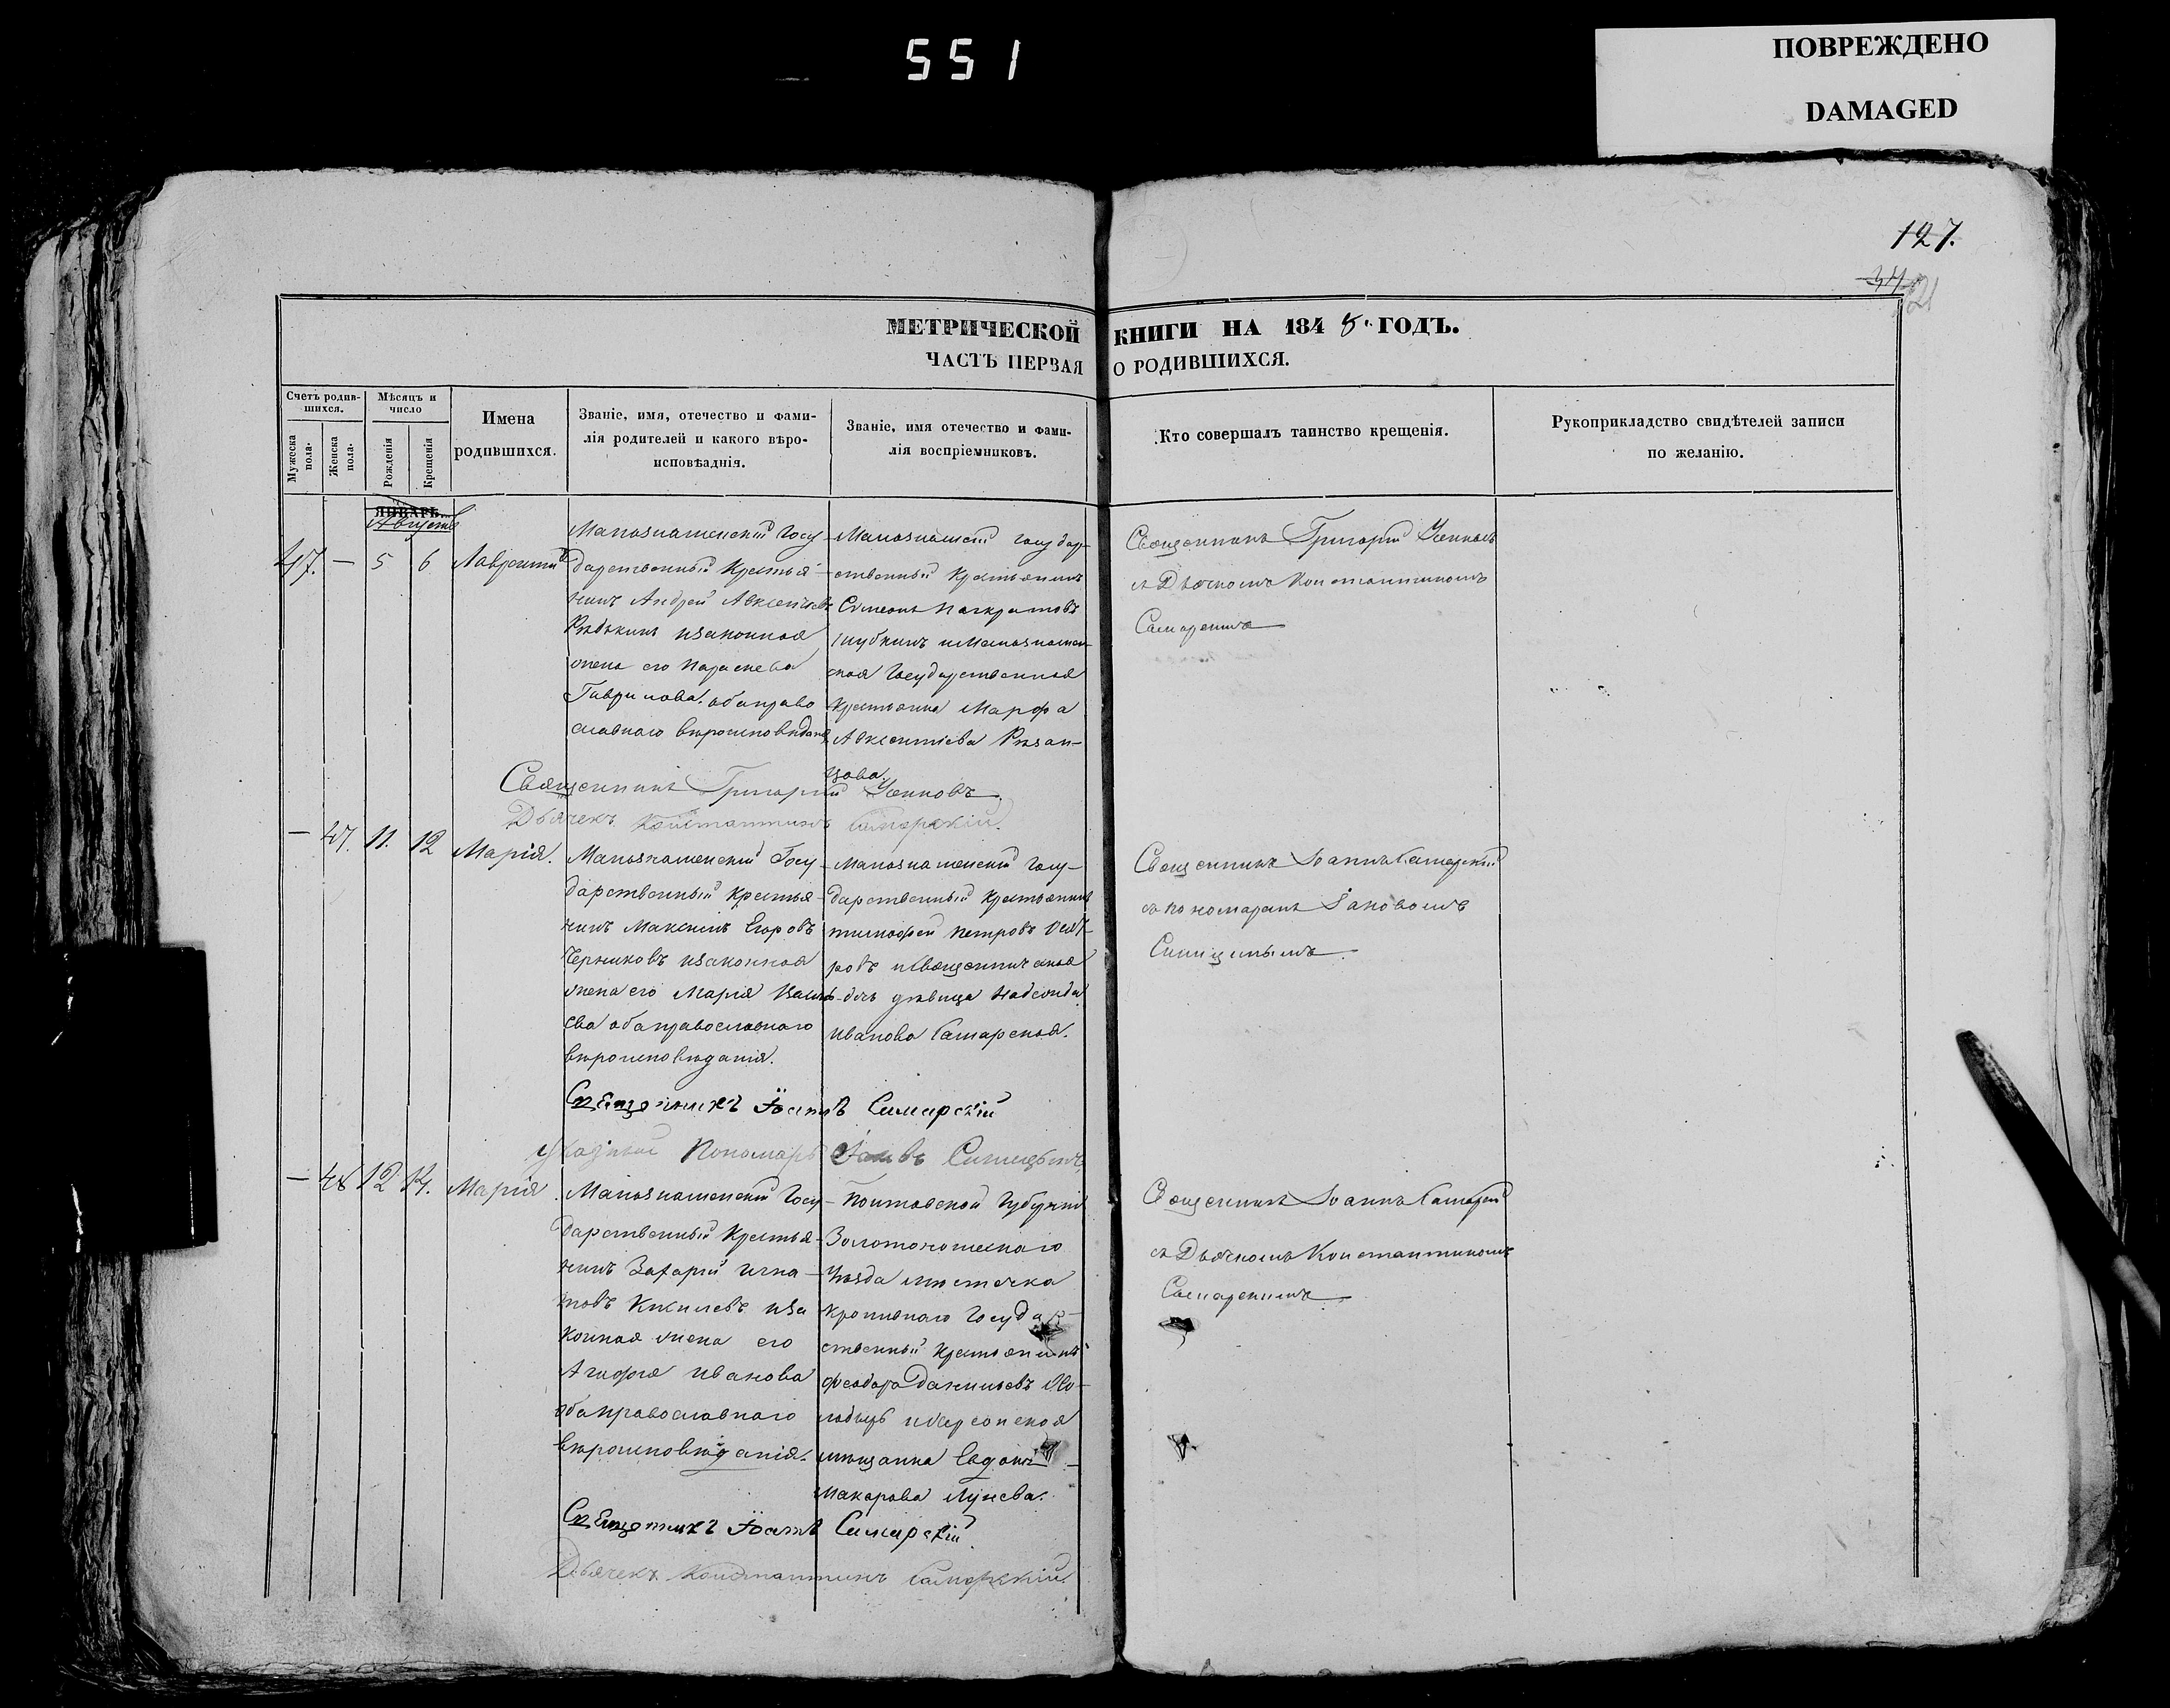 551
ПОВРЕЖДЕНО
DAMAGED
127.
МЕТРИЧЕСКОЙ КНИГИ НА 1848. ГОДЪ.
ЧАСТЬ ПЕРВАЯ О РОДИВШИХСЯ.
Счетъ родив-
шихся.
Мужеска
пола.
Женска
пола.
Мѣсяцъ и
число
Рожденія
Крещенія
Имена
родившихся.
Званіе, имя, отечество и фами-
лія родителей и какого вѣро-
исповѣаднія.
Званіе, имя отечество и фами-
лія воспріемниковъ.
Кто совершалъ таинство крещенія.
Рукоприкладство свидѣтелей записи
по желанію.
ЯНВАРЬ
Августъ
47. — 5 6 Лаврентій
Малознаменскій Госу-
дарственный Крестья-
нинъ Андрей Авксентьевъ
Рябкинъ изаконная
жена его Параскева
Гаврилова. оба право
славнаго вѣроисповѣданія
Малознаменскій государ-
ственный Крестьянинъ
Симеонъ Панкратовъ
Шубкинъ и Малознамен-
ская Государственная
крестьянка Марфа
Авксентіева Рязан-
цова.
Священникъ Григорій
съ Дьячкомъ Константиномъ
Самарскимъ
Священникъ Григорій
Дьячекъ Константинъ Самарскій.
— 47. 11. 12 Марія.
Малознаменскій Госу-
дарственный Крестья-
нинъ Максимъ Егоровъ
Черниковъ изаконная
жена его Марія
ева оба православнаго
вѣроисповѣданія.
Малознаменскій Госу-
дарственный Крестьянинъ
Тимофей Петровъ
ровъ и священническая
дочь дѣвица Надежда
Иванова Самарская.
Священникъ Іоаннъ Самарскій
съ пономаремъ Іаковомъ
Синицынымъ
Священникъ Іоаннъ Самарскій
Указный Пономарь Іаковъ Синицынъ
— 48 12 14. Марія
Малознаменскій Госу-
дарственный Крестья-
нинъ Захарій Игна-
товъ иза
конная жена его
Агафія Иванова
оба православнаго
вѣроисповѣданія.
Полтавской Губерніи
Золотоношскаго
Уѣзда мѣстечка
Кропивнаго Государ-
ственный Крестьянинъ
Феодоръ Даниловъ Сло-
бодецъ и Херсонская
мѣщанка Евдокія
Макарова Лунева.
Священникъ Іоаннъ Самарскій
съ Дьячкомъ Константиномъ
Самарскимъ
Священникъ Іоаннъ Самарскій
Дьячекъ Константинъ Самарскій.